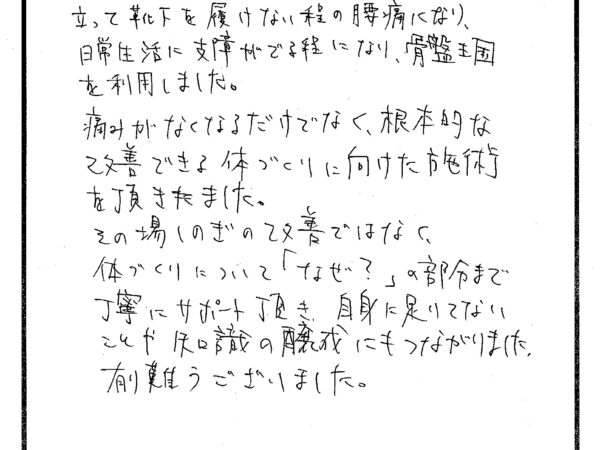 立って靴下を履けない程の腰痛になり、
日常生活に支障がでる程になり、骨盤王国
を利用しました。
痛みがなくなるだけでなく、根本的な
改善できる体づくりに向けた施術
を頂きました。
その場しのぎの改善ではなく、
体づくりについて「なぜ？」の部分まで
丁寧にサポート頂き、自身に足りてない
ことや知識の醸成にもつながりました。
有難うございました。